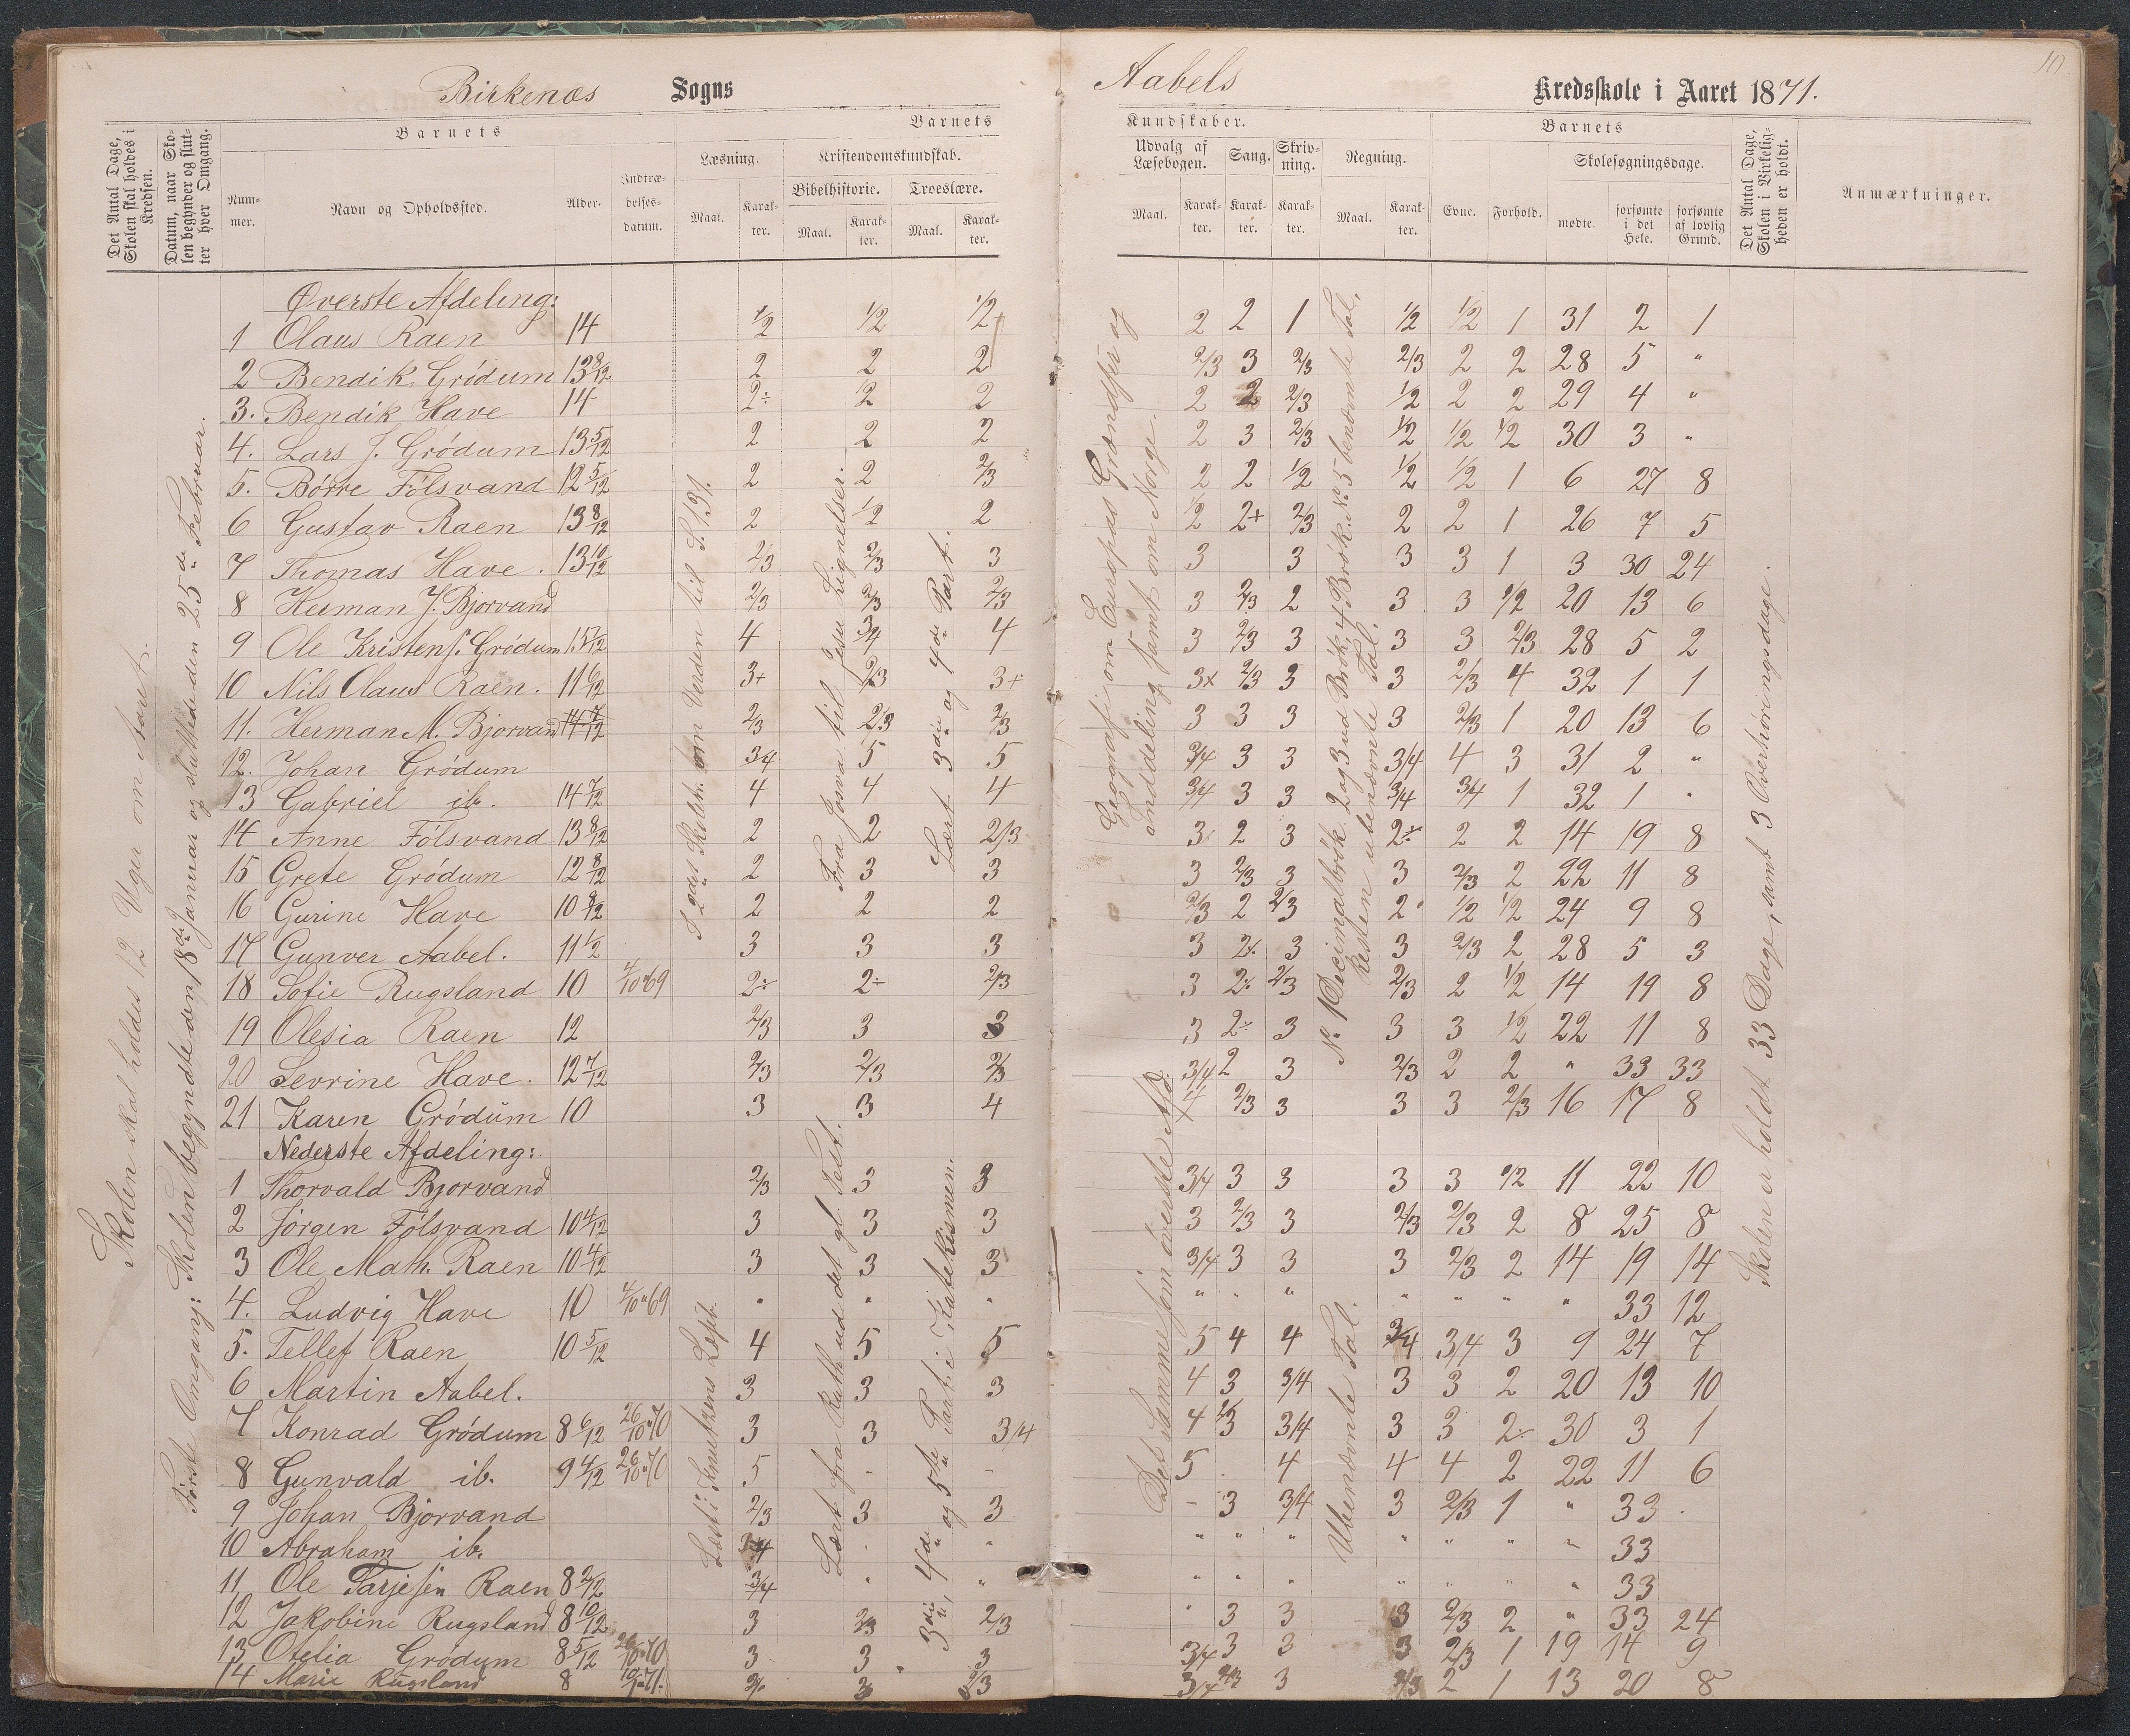 Birkenæs Sogns
Aabels Kredsskole i Aaret 1871.
10
Det Antal Dage, Skolen skal holdes i Kredsen.
Datum, naar Skolen begynder og slutter hver Omgang.
Barnets
Nummer.
Navn og Opholdssted.
Alder.
Indtrædelsesdatum.
Barnets
Læsning.
Maal.
Karakter.
Kristendomskundskab.
Bibelhistorie.
Maal.
Karakter.
Troeslære.
Maal.
Karakter.
Kundskaber.
Udvalg af Læsebogen.
Maal.
Karakter.
Sang.
Karakter.
Skrivning.
Karakter.
Regning.
Maal.
Karakter.
Barnets
Evne.
Forhold.
Skolesøgningsdage.
mødte.
forsømte i det Hele.
forsømte af lovlig Grund.
Det Antal Dage, Skolen i Virkeligheden er holdt.
Anmærkninger.
Skolen skal holdes 12 Uger om Aaret.
Første Omgang: Skolen begyndte den 18de Januar og sluttede den 25de Februar.
I 2det Skoletr. om Verden til S. 131.
Fra Josva til Jesu Lignelser.
Lært 3die og 4de Part.
Geografi om Europas Grændser og Inddeling samt om Norge.
No 1 Decimalbrøk 2 og 3 ud Brøk, 4 Brøk. No 5 benævnte Tal.
Resten ubenævnte Tal.
Skolen er holdt 33 Dage, samt 3 Overhøringsdage.
Øverste Afdeling:
1 Olaus Raen 14 1/2 1/2 1/2 2 2 1 1/2 1/2 1 31 2 1
2 Bendik Grødum 13 8/12 2 2 2 2/3 3 2/3 2/3 2 2 28 5 "
3. Bendik Have 14 2÷ 1/2 2 2 2 2/3 1/2 2 2 29 4 "
4. Lars J. Grødum 13 5/12 2 2 2 2 3 2/3 1/2 1/2 1/2 30 3 "
5. Børre Følsvand 12 5/12 2 2 2/3 2 2 1/2 1/2 1/2 1 6 27 8
6 Gustav Raen 13 8/12 2 1/2 2 1/2 2+ 2/3 2 2 1 26 7 5
7 Thomas Have. 13 10/12 2/3 2/3 3 3 3 3 3 1 3 30 24
8 Herman J. Bjorvand 2/3 2/3 2/3 3 2/3 2 3 3 1/2 20 13 6
9 Ole Kristens. Grødum 13 7/12 4 3/4 4 3 2/3 3 3 3 2/3 28 5 2
10 Nils Olaus Raen. 11 6/12 3+ 2/3 3+ 3+ 2/3 3 3 2/3 4 32 1 1
11. Herman M. Bjorvand 14 7/12 2/3 2/3 2/3 3 3 3 3 2/3 1 20 13 6
12. Johan Grødum 3/4 5 5 3/4 3 3 3/4 4 3 31 2 "
13 Gabriel ib. 14 7/12 4 4 4 3/4 3 3 3/4 3/4 1 32 1 "
14 Anne Følsvand 13 8/12 2 2 2/3 3 2 3 2÷ 2 2 14 19 8
15 Grete Grødum 12 8/12 2 3 3 3 2/3 3 3 2/3 2 22 11 8
16 Gurine Have 10 8/12 2 2 2 2/3 2 2/3 2 1/2 1/2 24 9 8
17 Gunver Aabel. 11 1/2 3 3 3 3 2÷ 3 3 2/3 2 28 5 3
18 Sofie Rugsland 10 4/10 69 2÷ 2÷ 2/3 3 2÷ 2/3 2/3 2 1/2 14 19 8
19 Olesia Raen 12 2/3 3 3 3 2÷ 3 3 3 1/2 22 11 8
20 Sevrine Have. 12 7/12 2/3 2/3 2/3 3/4 2 3 2/3 2 2 " 33 33
21 Karen Grødum 10 3 3 4 4 2/3 3 3 3 2/3 16 17 8
Nederste Afdeling:
Læst i Knutzens Læseb.
Lært fra Ruth ud det gl. Test.
3die, 4de og 5te Part i Katekismen.
Det Samme som øverste Afd.
Ubenævnte Tal.
1 Thorvald Bjorvand 2/3 3 3 3/4 3 3 3 3 1/2 11 22 10
2 Jørgen Følsvand 10 4/12 3 3 3 3 2/3 3 2/3 2/3 2 8 25 8
3 Ole Math. Raen 10 4/12 3 3 3 3/4 3 3 3 2/3 2 14 19 14
4. Ludvig Have 10 4/10 69 " " " " " " " " " " 33 12
5. Tellef Raen 10 5/12 4 5 5 5 4 4 3/4 3/4 3 9 24 7
6 Martin Aabel. 3 3 3 4 3 3/4 3 3 2 20 13 10
7 Konrad Grødum 8 6/12 26/10 70 3 3 3/4 4 2/3 3/4 3 3 2÷ 30 3 1
8 Gunvald ib. 9 4/12 26/10 70 5 - - 5 . 4 4 4 2 22 11 6
9 Johan Bjorvand 2/3 3 3 - 3 3/4 3 2/3 1 " 33 .
10 Abraham ib. 3/4 " " " " " " " " " 33
11 Ole Tarjesen Raen 8 2/12 3/4 " " " " " " " " " 33
12 Jakobine Rugsland 8 10/12 3 2/3 2/3 " 3 3 3 2/3 2 " 33 24
13 Otelia Grødum 8 5/12 26/10 70 3 3 3 3/4 3 3 3 2/3 1 19 14 9
14 Marie Rugsland 8 10/1 71. 3 2/3 3/4 2/3 3 2/3 2 1 13 20 8